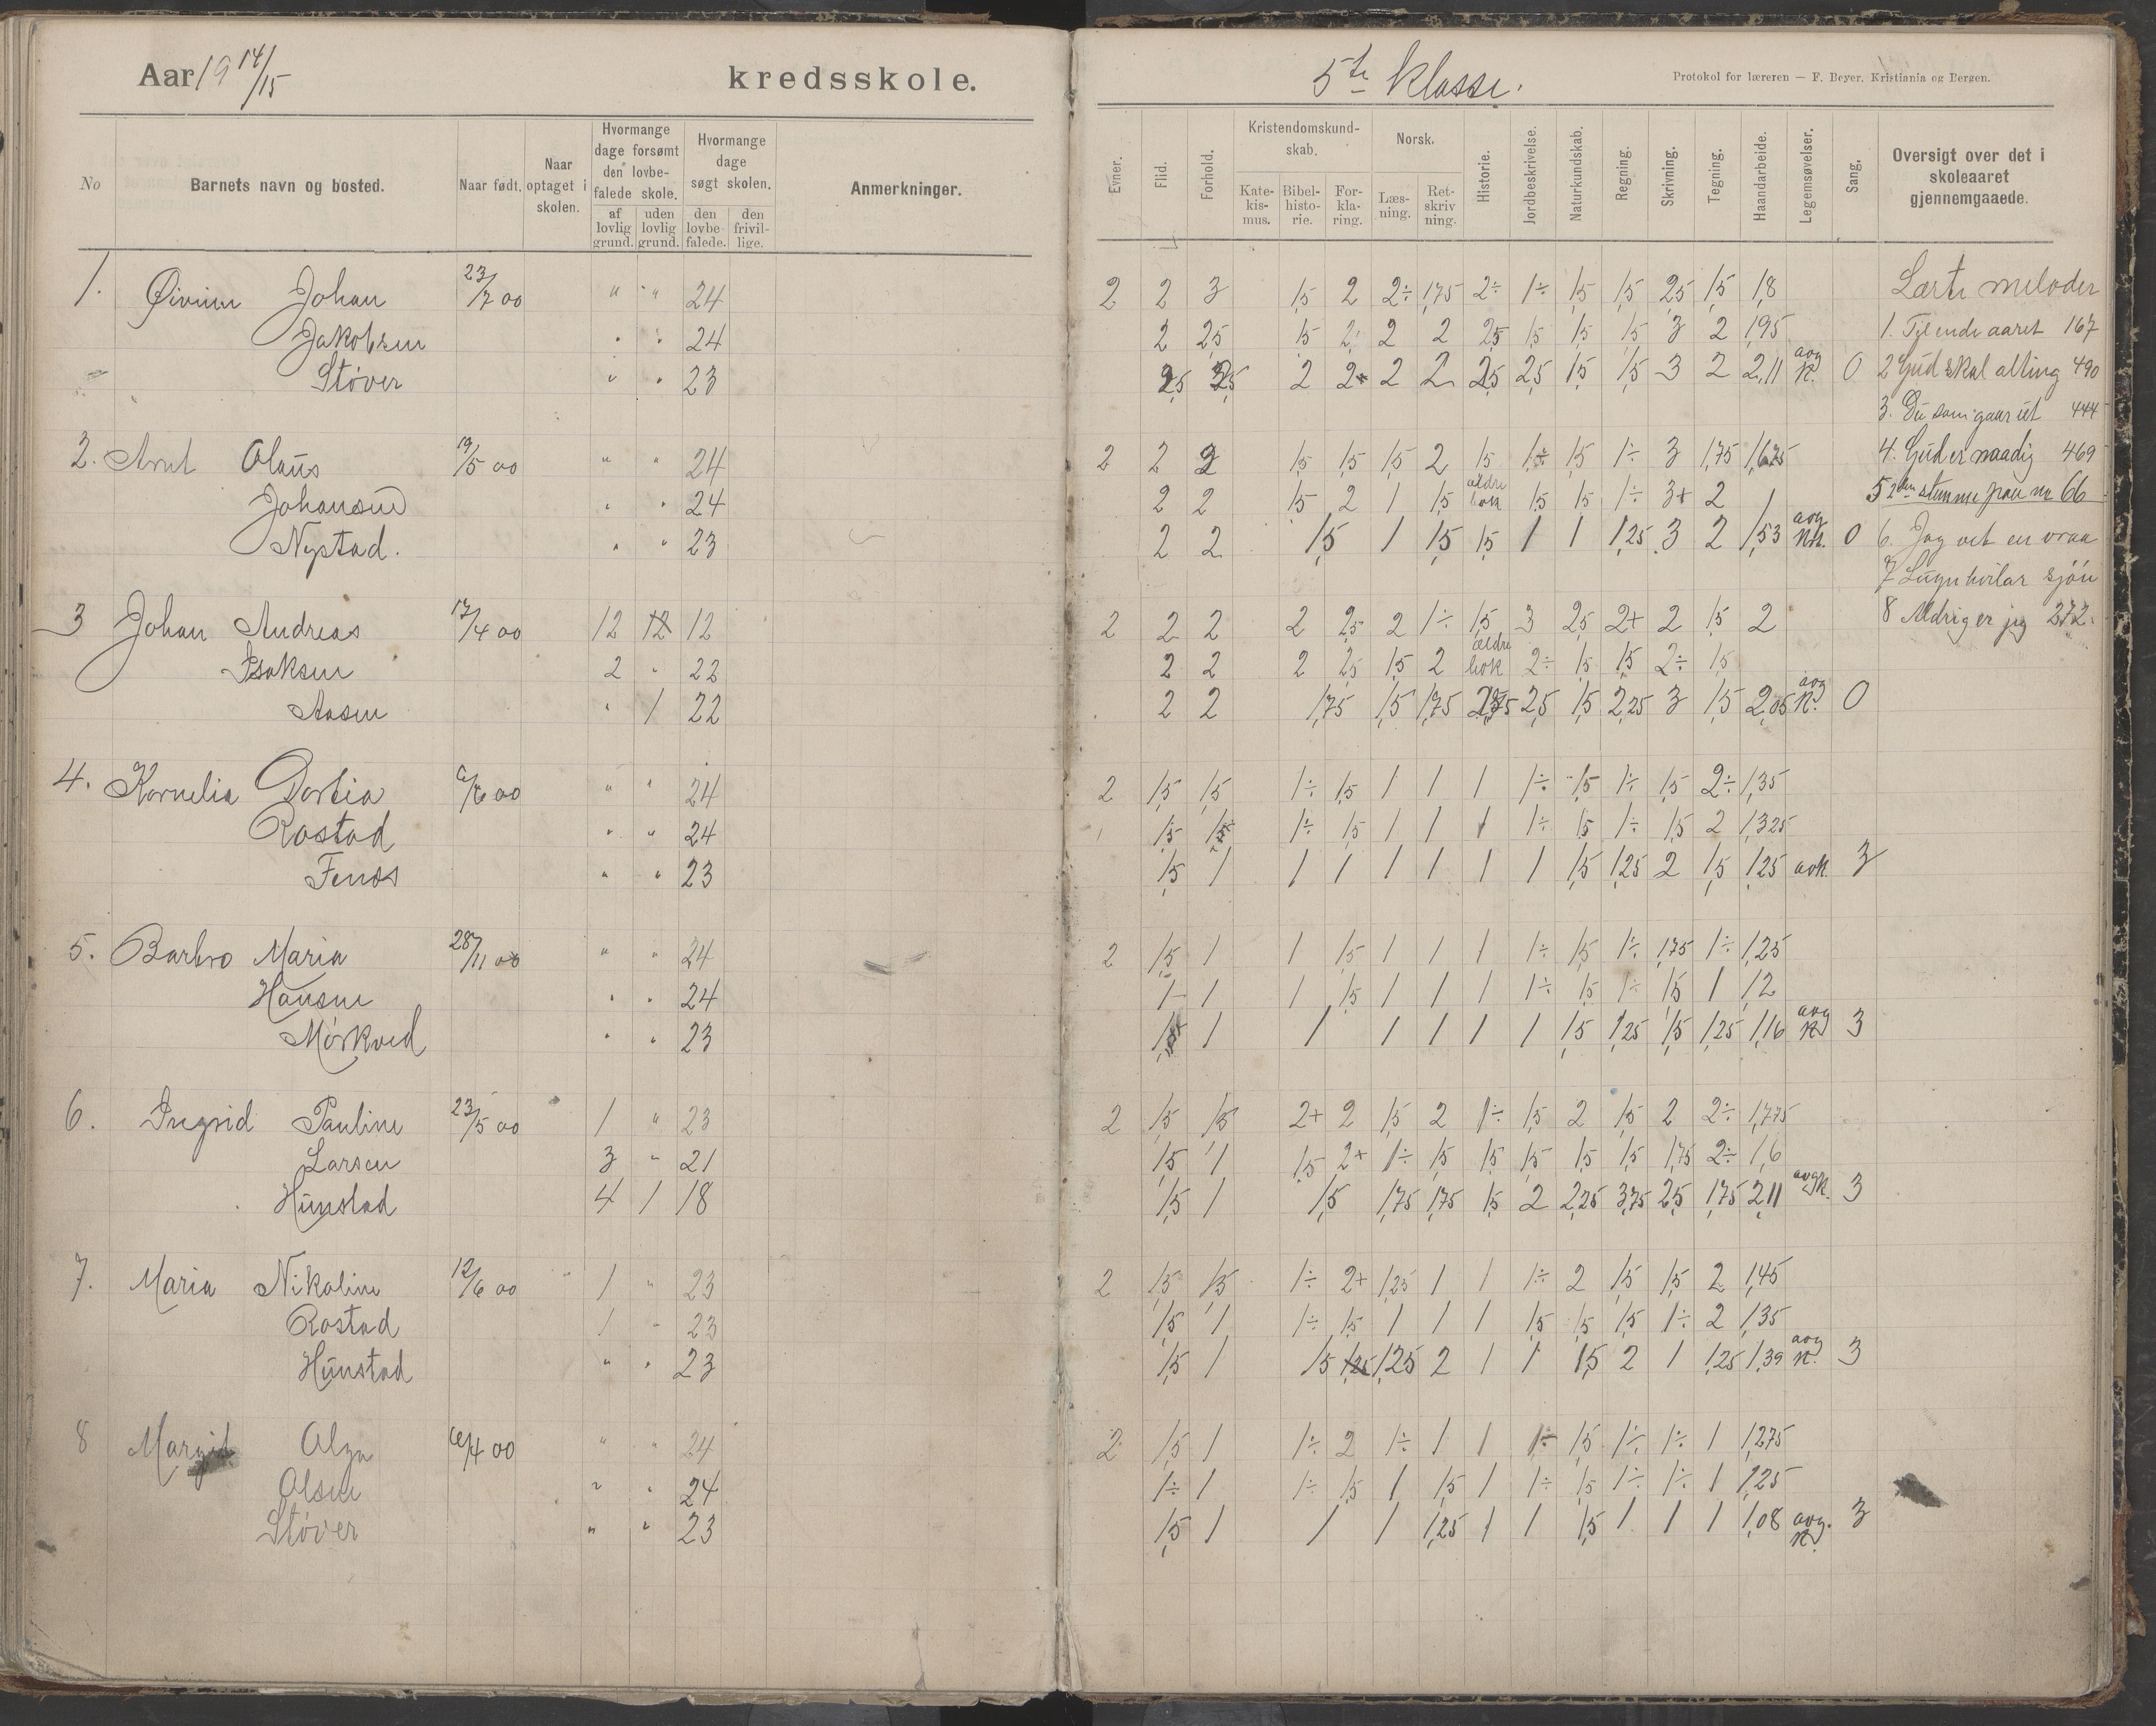 Aar 19 14/15
kredsskole.
5te klasse.
Protokol for læreren — F. Beyer, Kristiania og Bergen.
No
Barnets navn og bosted.
Naar født.
Naar optaget i skolen.
Hvormange dage forsømt den lovbefalede skole.
af lovlig grund.
uden lovlig grund.
Hvormange dage søgt skolen.
den lovbefalede.
den frivillige.
Anmerkninger.
Evner.
Flid.
Forhold.
Kristendomskundskab.
Katekismus.
Bibelhistorie.
Forklaring.
Norsk.
Læsning.
Retskrivning.
Historie.
Jordbeskrivelse.
Naturkundskab.
Regning.
Skrivning.
Tegning.
Haandarbeide.
Legemsøvelser.
Sang.
Oversigt over det i skoleaaret gjennemgaaede.
1. Øivinn Johan 23/7 00 " " 24 2 2 3 1,5 2 2÷ 1,75 2÷ 1÷ 1,5 1,5 2,5 1,5 1,8
Jakobsen " " 24 2 2,5 1,5 2 2 2 2,5 1,5 1,5 1,5 3 2 1,95
Støver " " 23 2 2 2 2 2,5 2,5 1,5 1,5 3 2 2,11 avg K. 0
2. Arnt Olaus 19/5 00 " " 24 2 2 1,5 1,5 1,5 2 1,5 1÷ 1,5 1÷ 3 1,75
Johansen " " 24 2 2 1,5 2 1 1,5 ældre bok 1,5 1,5 1÷ 3+ 2
Nystad. " " 23 2 2 1,5 1 1,5 1,5 1 1 1,25 3 2 1,53 avg 0
3 Johan Andreas 17/4 00 12 12 2 2 2 2 2,5 2 1÷ 1,5 3 2,5 2+ 2 1,5 2
Isaksen 2 " 22 2 2 2 2,5 1,5 2 ældre bok 2÷ 1,5 1,5 2÷ 1,5
Aasen " 1 22 2 2 1,75 1,5 1,75 2,5 1,5 2,25 3 1,5 2,05 avg K. 0
4. Kornelia Dortia /6 00 " " 24 2 1,5 1,5 1÷ 1,5 1 1 1 1÷ 1,5 1÷ 1,5 2÷ 1,35
Rostad " " 24 1,5 1,5 1÷ 1,5 1 1 1 1÷ 1,5 1÷ 1,5 2 1,325
Fenes " " 23 1,5 1 1 1 1 1 1 1 1,5 1,25 2 1,5 1,25 avk. 3
5. Barbro Maria 28/11 00 " " 24 2 1,5 1 1 1,5 1 1 1 1÷ 1,5 1÷ 1,75 1÷ 1,25
Hansen " " 24 1- 1 1 1,5 1 1 1 1÷ 1,5 1÷ 1,5 1 1,2
Mörkved " " 23 1 1 1 1 1 1 1,5 1,25 1,5 1,25 1,16 avg K 3
6. Ingrid Pauline 23/5 00 1 " 23 2 1,5 1,5 2+ 2 1,5 2 1÷ 1,5 2 1,5 2 2÷ 1,775
Larsen 3 " 21 1,5 1 1,5 2+ 1÷ 1,5 1,5 1,5 1,5 1,5 1,75 2÷ 1,6
Hunstad 4 1 18 1,5 1 1,5 1,75 1,75 1,5 2 2,25 3,75 2,5 1,75 2,11 avgK. 3
7. Maria Nikoline 12/6 00 1 " 23 2 1,5 1,5 1÷ 2+ 1,25 1 1 1÷ 2 1,5 1,5 2 1,45
Rostad 1 " 23 1,5 1 1÷ 1,5 1 1 1 1,5 1,5 1,5 1÷ 2 1,35
Hunstad " " 23 1,5 1 1,5 1,25 1,25 2 1 1 1,5 2 1 1,25 1,39 avg K. 3
8 Margit Olga /4 00 " " 24 2 1,5 1 1÷ 2 1÷ 1 1 1÷ 1,5 1÷ 1÷ 1 1,275
Olsen " " 24 1÷ 1 1÷ 1,5 1 1,5 1 1÷ 1,5 1÷ 1÷ 1 1,25
Støver " " 23 1,5 1 1 1 1,25 1 1 1,5 1 1 1 1,08 avg. K. 3
Lærte melodier
1. Til ende aaret 167
2 Gud skal alting 490
3. Du som gaar ut 444
4. Gud er naadig 469
5 2den stemme paa nr 66
6. Jag vet en vraa
7 Lugn hvilar sjön
8 Aldrig er jeg 272.